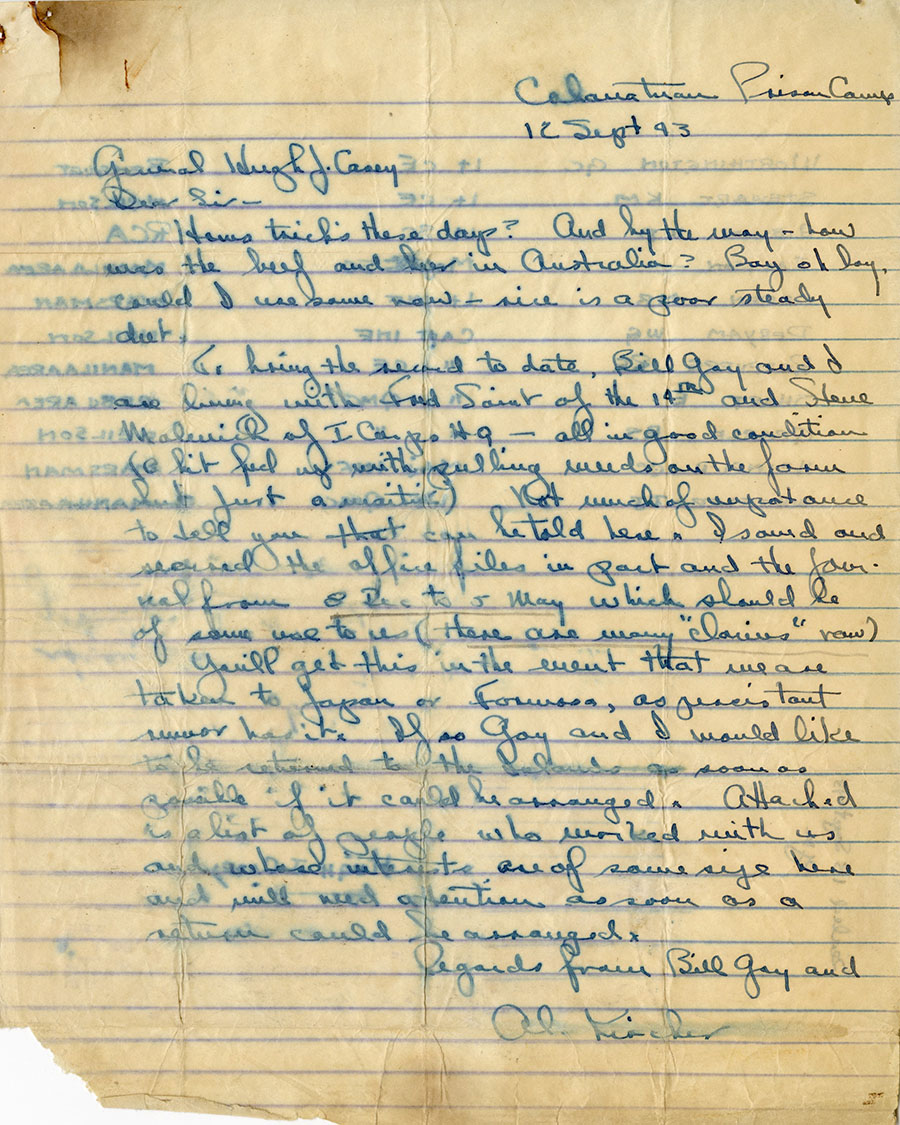 Cabanatuan Prison Camp
12 Sept 43
General Hugh J. Casey
Dear Sir -
Hows tricks these days? And by the way - how
was the beef and beer in Australia? Boy oh boy,
could I use some now - rice is a poor steady
diet.
To bring the record to date, Bill Gay and I
are living with Fred Saint of the 14th and Steve
Malevich of I Corps HQ - all in good condition
(a bit fed up with pulling weeds on the farm
but just a waitin) Not much of importance
to tell you that can be told here. I saved and
the office files in part and the jour-
nal from 8 Dec to 5 May which should be
of some use to us (there are many "claims" now)
You'll get this in the event that we are
taken to Japan or Formosa, as persistant
rumor has it. If so Gay and I would like
to be returned to the Islands as soon as
possible if it could be arranged. Attached
is a list of people who worked with us
and whose interests are of some size here
and will need attention as soon as a
return could be arranged.
Regards from Bill Gay and
Al. Kircher